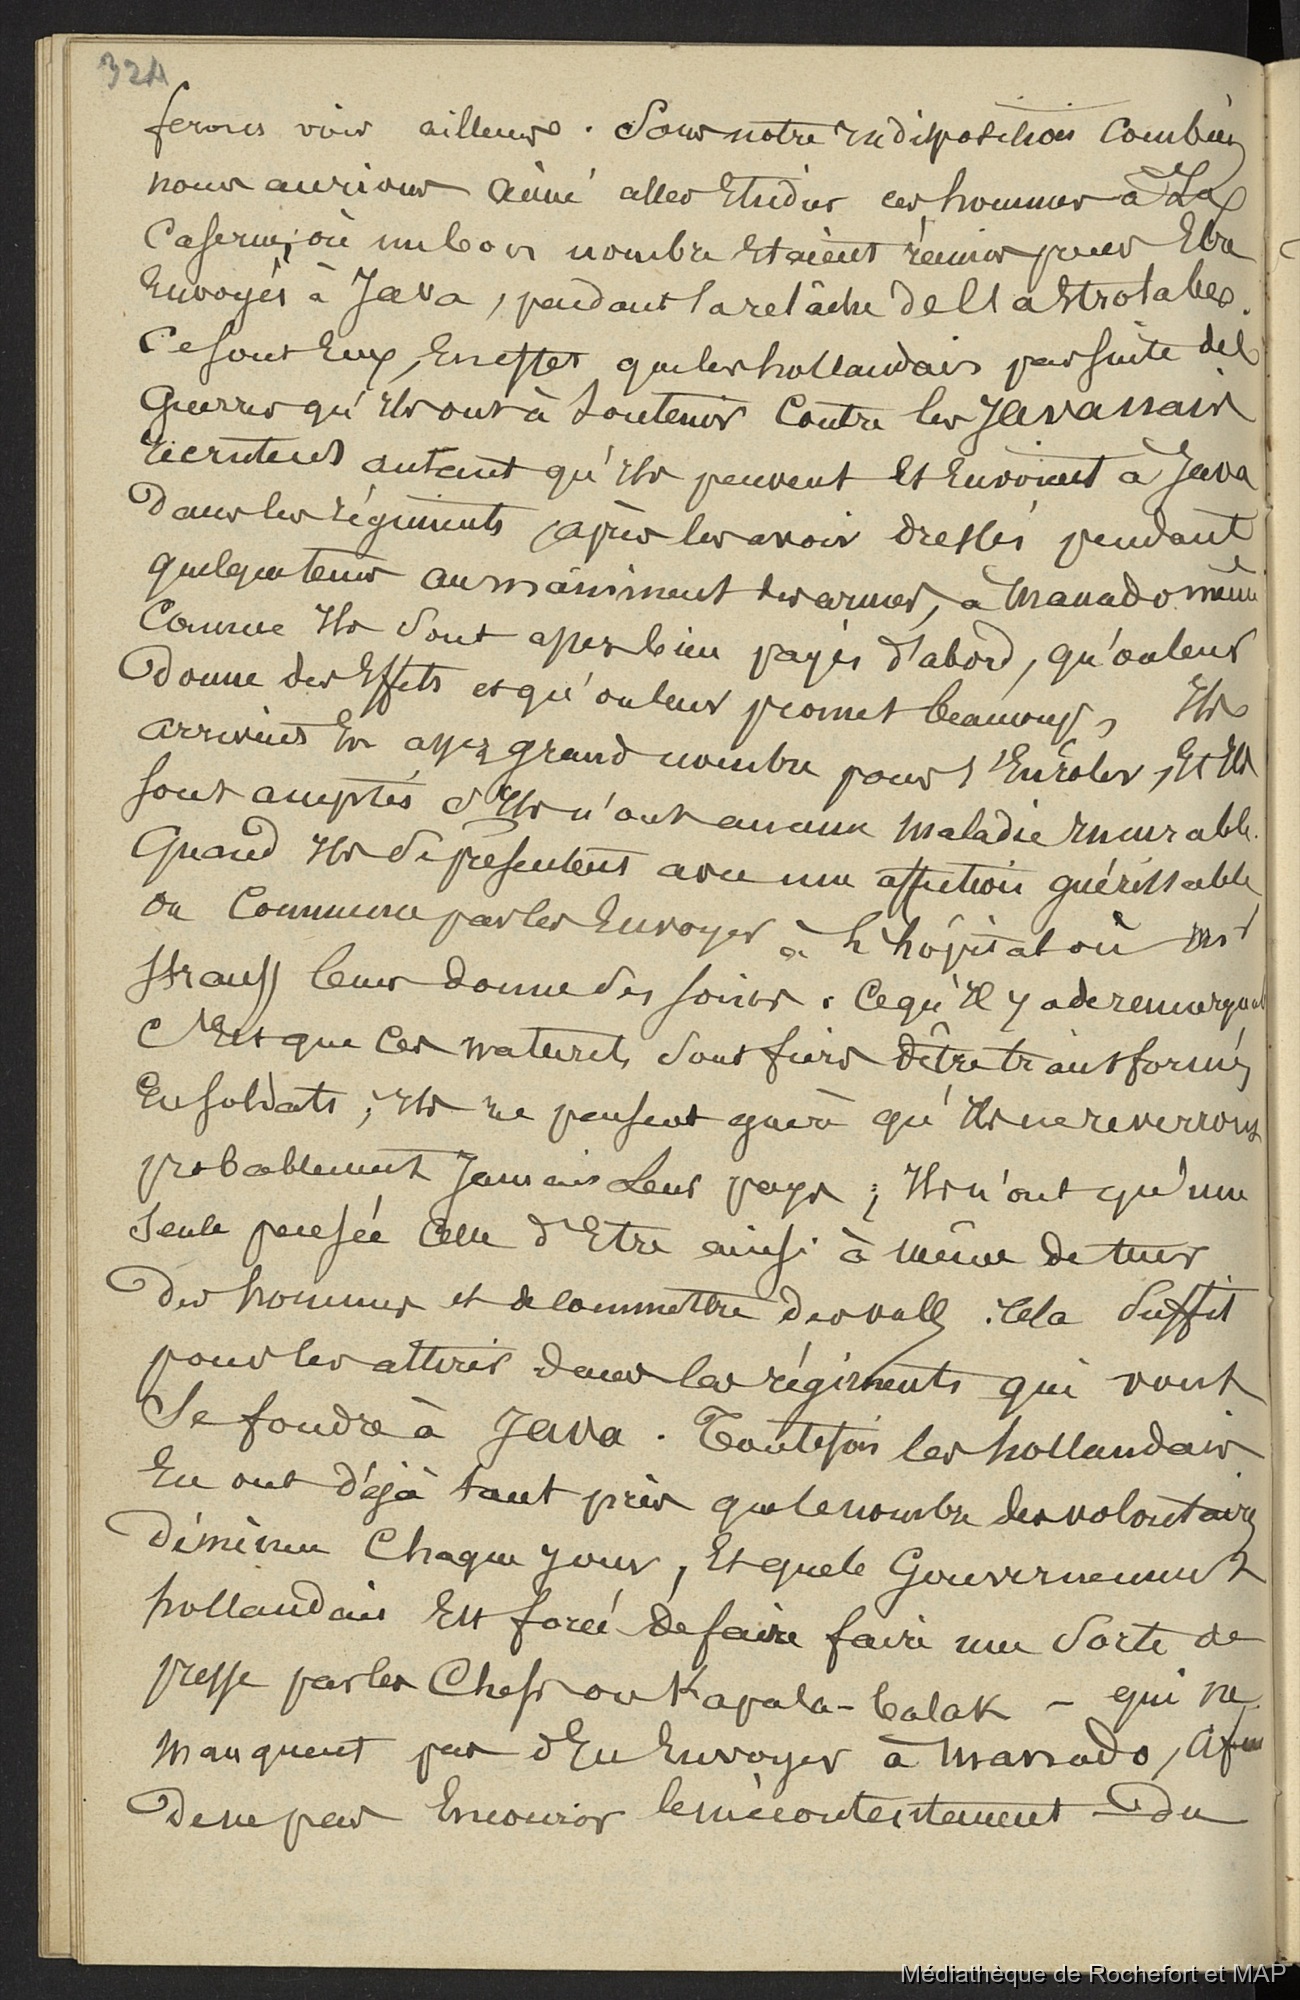 324
ferons voir ailleurs. Sans notre indisposition combien
nous aurions aimé aller Etudier ces hommes à La
Caserne, où un bon nombre Etaient réunis pour Etre
Envoyés à Java, pendant la relâche de l'Astrolabe.
Ce sont Eux, En effet que les hollandais par suite des
Guerres qu'ils ont à Soutenir Contre les Javanais
recrutent autant qu'ils peuvent Et Envoient à Java
Dans les régiments, après les avoir dressés pendant
quelque tems au maniment des armes, à Manado même
Comme Ils Sont assez bien payés d'abord, qu'on leur
Donne des Effets et qu'on leur promet beaucoup, Ils
arrivent En assez grand nombre pour s'Enroler, Et Ils
sont acceptés S'Ils n'ont aucune maladie Incurable.
Quand Ils Se présentent avec une affection guérissable
on Commence par les Envoyer à l'hôpital où Mr
Strauss leur donne des soins. Ce qu'Il y a de remarquable
C'Est que Ces naturels Sont fiers d'être transformés
En soldats; Ils ne pensent guère qu'Ils ne reverront
probablement Jamais Leur pays; Ils n'ont qu'une
Seule pensée Celle d'Etre ainsi à même de tuer
Des hommes et de Commettre des vols. Cela Suffit
pour les attirer dans les régiments qui vont
Se fondre à Java. Toutefois les hollandais
En ont déjà tant pris que le nombre des volontaires
Diminue Chaque jour, Et que le Gouvernement
hollandais Est forcé de faire faire une Sorte de
presse par les Chefs ou Kapala-balak - qui ne
manquent pas d'En Envoyer à Manado, Afin
De ne pas Encourir le mécontentement Du
Médiathèque de Rochefort et MAP